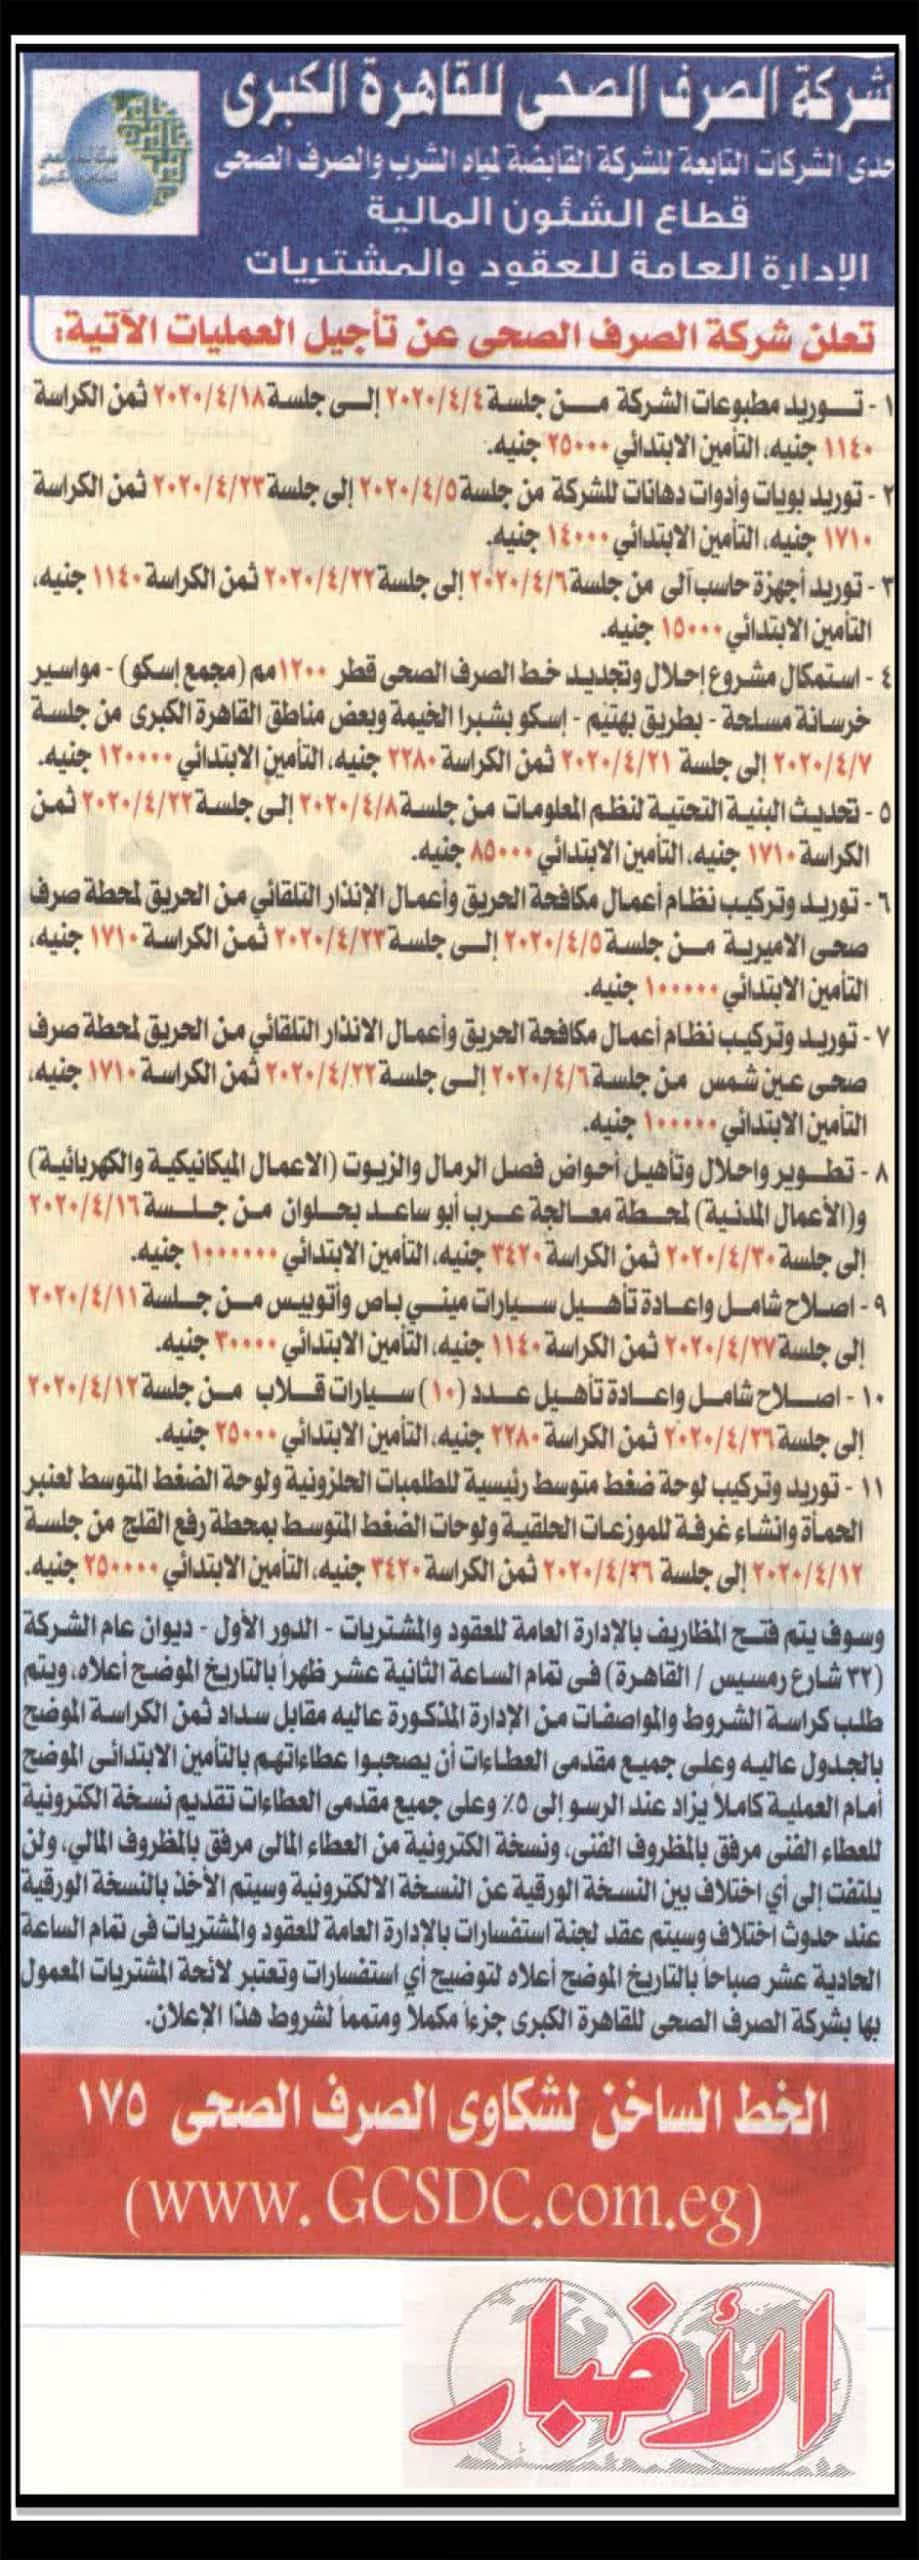 شركة الصرف الصحى للقاهرة الكبرى
حدى الشركات التابعة للشركة القابضة لمياه الشرب والصرف الصحى
قطاع الشئون المالية
الإدارة العامة للعقود والمشتريات
تعلن شركة الصرف الصحى عن تأجيل العمليات الآتية:
١ - تـــوريد مطبوعات الشركة مـــن جلسة ٢٠٢٠/٤/٤ إلـــى جلسة ٢٠٢٠/٤/١٨ ثمن الكراسة
١١٤٠ جنيه، التأمين الابتدائي ٢٥٠٠٠ جنيه.
٢ - توريد بويات وأدوات دهانات للشركة من جلسة ٢٠٢٠/٤/٥ إلى جلسة ٢٠٢٠/٤/٢٣ ثمن الكراسة
١٧١٠ جنيه، التأمين الابتدائي ١٤٠٠٠ جنيه.
٣ - توريد أجهزة حاسب آلى من جلسة ٢٠٢٠/٤/٦ إلى جلسة ٢٠٢٠/٤/٢٢ ثمن الكراسة ١١٤٠ جنيه،
التأمين الابتدائي ١٥٠٠٠ جنيه.
٤ - استمكال مشروع إحلال وتجديد خط الصرف الصحى قطر ١٢٠٠مم (مجمع إسكو) - مواسير
خرسانة مسلحة - بطريق بهتيم - إسكو بشبرا الخيمة وبعض مناطق القاهرة الكبرى من جلسة
٢٠٢٠/٤/٧ إلى جلسة ٢٠٢٠/٤/٢١ ثمن الكراسة ٢٢٨٠ جنيه، التأمين الابتدائي ١٢٠٠٠٠ جنيه.
٥ - تحديث البنية التحتية لنظم المعلومات من جلسة ٢٠٢٠/٤/٨ إلـى جلسة ٢٠٢٠/٤/٢٢ ثمـن
الكراسة ١٧١٠ جنيه، التأمين الابتدائي ٨٥٠٠٠ جنيه.
٦ - توريد وتركيب نظام أعمال مكافحة الحريق وأعمال الإنذار التلقائي من الحريق لمحطة صرف
صحى الاميرية مـن جلسة ٢٠٢٠/٤/٥ إلـى جلسة ٢٠٢٠/٤/٢٣ ثمـن الكراسة ١٧١٠ جنيه،
التأمين الابتدائي ١٠٠٠٠٠ جنيه.
٧ - توريد وتركيب نظام أعمال مكافحة الحريق وأعمال الانذار التلقائي من الحريق لمحطة صرف
صحى عين شمس من جلسة ٢٠٢٠/٤/٦ إلـى جلسة ٢٠٢٠/٤/٢٢ ثمن الكراسة ١٧١٠ جنيه،
التأمين الابتدائي ١٠٠٠٠٠ جنيه.
٨ - تطـوير واحلال وتأهيل أحواض فصل الرمال والزيوت (الاعمال الميكانيكية والكهربائية)
و(الأعمال المدنية) لمحطة معالجة عرب أبو ساعد بحلوان من جلـسة ٢٠٢٠/٤/١٦
إلى جلسة ٢٠٢٠/٤/٣٠ ثمن الكراسة ٣٤٢٠ جنيه، التأمين الابتدائي ١٠٠٠٠٠٠ جنيه.
٩ - اصـلاح شامـل واعـادة تأهـيل سـيارات ميني باص وأتوبيس مـن جـلسة ٢٠٢٠/٤/١١
إلى جلسة ٢٠٢٠/٤/٢٧ ثمن الكراسة ١١٤٠ جنيه، التأمين الابتدائي ٣٠٠٠٠ جنيه.
١٠ - اصـلاح شامـل واعـادة تأهيل عـدد (١٠) سـيارات قـلاب مـن جلسة ٢٠٢٠/٤/١٢
إلى جلسة ٢٠٢٠/٤/٢٦ ثمن الكراسة ٢٢٨٠ جنيه، التأمين الابتدائي ٢٥٠٠٠ جنيه.
١١ - توريد وتركيب لوحة ضغط متوسط رئيسية للطلمبات الحلزونية ولوحة الضغط المتوسط لعنبر
الحمأة وانشاء غرفة للموزعات الحلقية ولوحات الضغط المتوسط بمحطة رفع القلج من جلسة
٢٠٢٠/٤/١٢ إلى جلسة ٢٠٢٠/٤/٢٦ ثمن الكراسة ٣٤٢٠ جنيه، التأمين الابتدائي ٢٥٠٠٠٠ جنيه.
وسوف يتم فتـح المظاريف بالإدارة العامة للعقود والمشتريات - الدور الأول - ديوان عام الشركة
(٣٢ شارع رمسيس / القاهرة) فى تمام الساعة الثانية عشر ظهراً بالتاريخ الموضح أعلاه، ويتم
طلب كراسة الشروط والمواصفات من الإدارة المذكورة عاليه مقابل سداد ثمن الكراسة الموضح
بالجدول عاليه وعلى جميع مقدمى العطاءات أن يصحبوا عطاءاتهم بالتأمين الابتدائى الموضح
أمام العملية كاملاً يزاد عند الرسو إلى ٥٪ وعلى جميع مقدمى العطاءات تقديم نسخة الكترونية
للعطاء الفنى مرفق بالمظروف الفنى، ونسخة الكترونية من العطاء المالى مرفق بالمظروف المالي، ولن
يلتفت إلى أي اختلاف بين النسخة الورقية عن النسخة الالكترونية وسيتم الأخذ بالنسخة الورقية
عند حدوث اختلاف وسيتم عقد لجنة استفسارات بالإدارة العامة للعقود والمشتريات فى تمام الساعة
الحادية عشر صباحاً بالتاريخ الموضح أعلاه لتوضيح أي استفسارات وتعتبر لائحة المشتريات المعمول
بها بشركة الصرف الصحى للقاهرة الكبرى جزءاً مكملاً ومتمماً لشروط هذا الإعلان.
الخط الساخن لشكاوى الصرف الصحى ١٧٥
(www. GCSDC.com.eg)
الأخبار